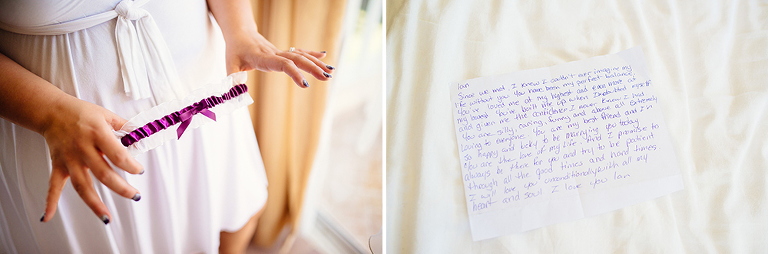 Ian
Since we met I knew I couldn't ever imagine my
life without you. You have been my perfect balance.
You've loved me at my highest and even more at
my lowest. You've built me up when I doubted myself
and given me the confidence I never knew I had.
You are silly, caring, funny and above all extremely
loving to everyone. You are my best friend and I'm
so happy and lucky to be marrying you today.
You are the love of my life. And I promise to
always be there for you and try to be patient
through all the good times and hard times
I will love you unconditionally with all my
heart and soul I love you Ian